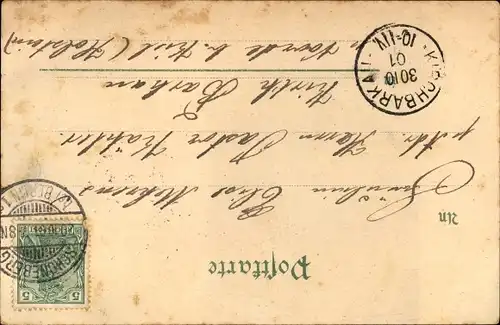 Postkarte
An
Fräulein Elise Mohrens
p. Adr. Herrn Pastor Köhler
Kirch Barkau
b. Voorde b. Kiel (Holstein)
KIRCHBARKAU
30 10
01
10-11V.
SCHÖNEBERG
5 5